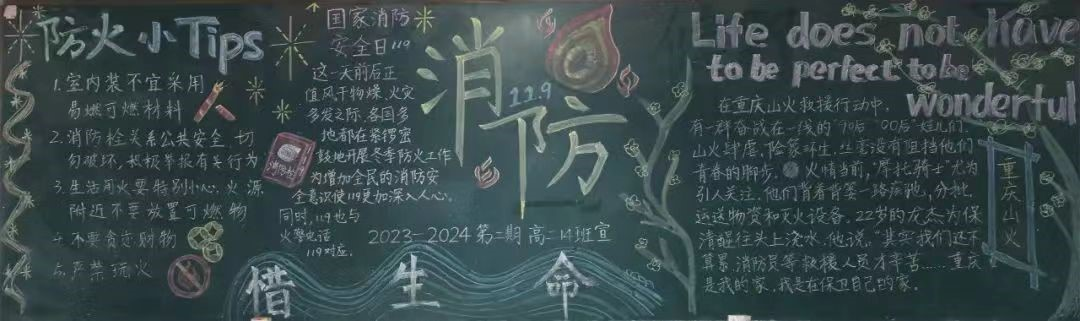 防火小Tips
1.室内装不宜采用
易燃可燃材料
2.消防栓关系公共安全,切
勿破坏,积极举报有关行为
3.生活用火要特别小心,火源
附近不要放置可燃物
4.不要贪恋财物
5.严禁玩火
国家消防
安全日119
这一天前后正
值风干物燥,火灾
多发之际,各国多
地都在紧锣密
鼓地开展冬季防火工作
为增加全民的消防安
全意识使119更加深入人心。
同时,119也与
火警电话
119对应。
消防
11.9
2023-2024第二期高二14班宣
惜生命
Life does not have
to be perfect to be
wonderful
在重庆山火救援行动中,
有一群奋战在一线的"90后""00后"娃儿们.
山火肆虐,险象环生,丝毫没有阻挡他们
青春的脚步。火情当前,"摩托骑士"尤为
引人关注,他们背着背篓一路疾驰,分批
运送物资和灭火设备。22岁的龙杰为保
清醒往头上浇水,他说,"其实我们还不
算累,消防员等救援人员才辛苦……重庆
是我的家,我是在保卫自己的家。
重庆山火